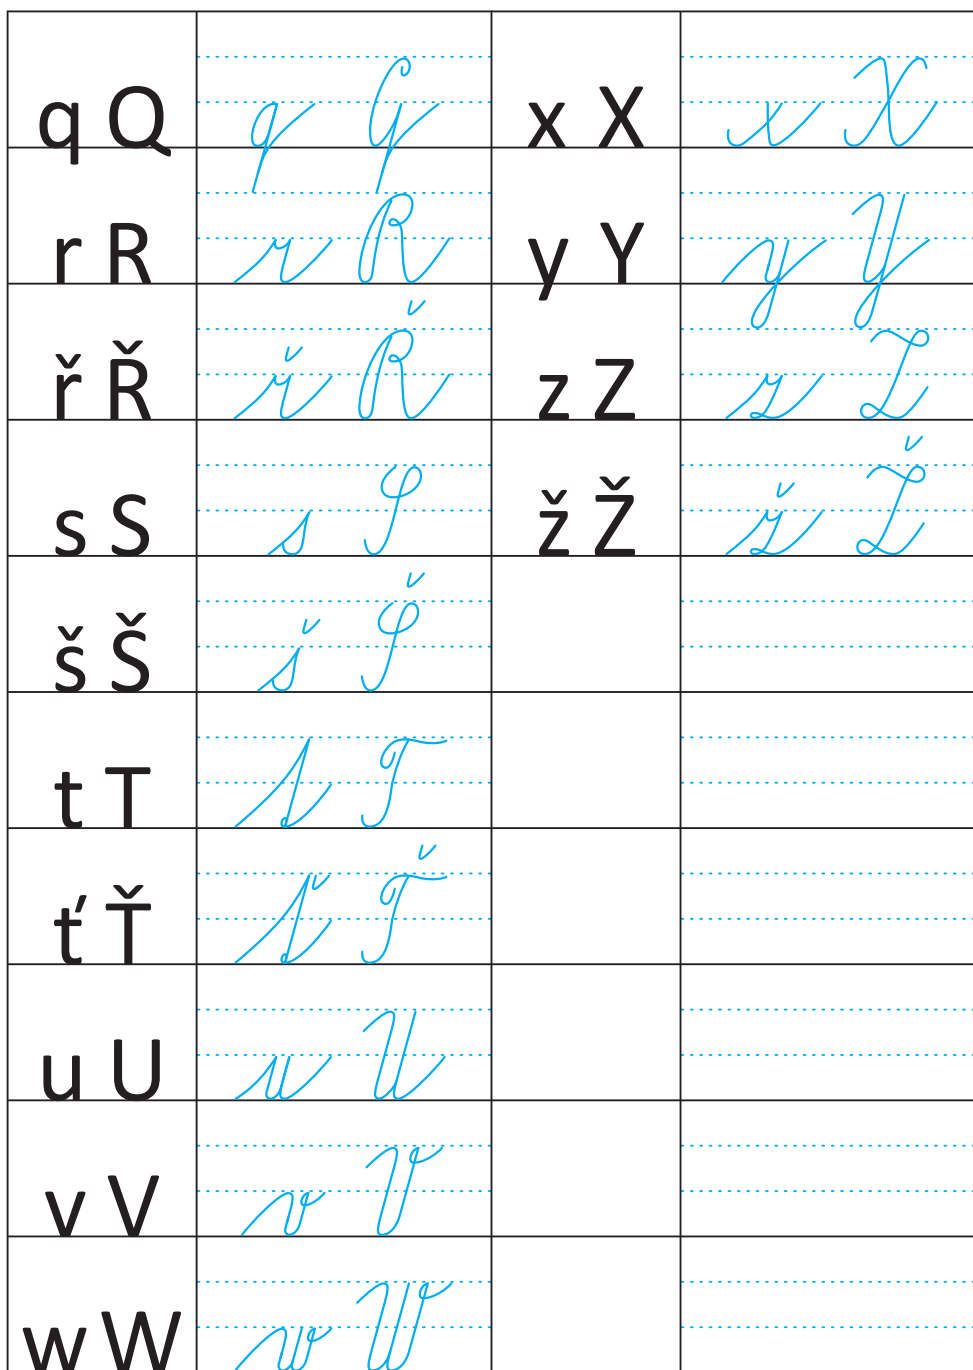 q Q q Q x X x X
r R r R y Y y Y
ř Ř ř Ř z Z z Z
s S s S ž Ž ž Ž
š Š š Š
t T t T
ť Ť ť Ť
u U u U
v V v V
w W w W